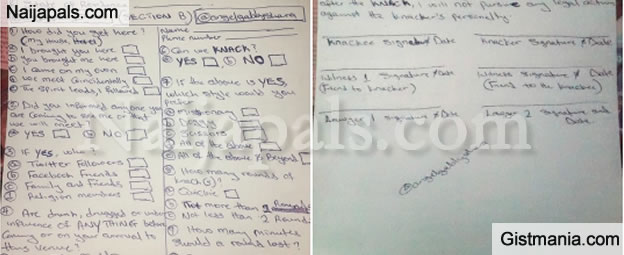 SECTION B
@angelgabbyshara
① How did you get here?
(my house, Hotel)
I brought you here
You brought me here
I came on my own
We meet Coincidentally
The Spirit leads, I followed
Did you informed any one you
are coming to see me or that
we will meet?
YES NO
If YES, who
Twitter Followers
Facebook Friends
Family and Friends
Religion members
Are drunk, drugged or under
influence of ANYTHING before
Coming or on your arrival to
this venue?
Name
Phone number
⑥ Can we KNACK?
YES NO
⑦ If the above is YES,
which style would you
Missionary
Doggy
Scissors
All of the above
All of the above & Beyond
How many rounds of
knack(s)?
Quickie
Not more than 2 Rounds
Not less than 2 Rounds
How many minutes
should a round last?
after the KNACK, I will not pursue any legal action
against the knacker's personality.
Knackee Signature & Date
Knacker Signature & Date
Witness 1 Signature & Date
(Friend to knacker)
Witness Signature & Date
(Friend to the knackee)
Lawyer 1 Signature & Date
Lawyer 2 Signature and
Date
@angelgabbyshara
Naijapals.com
Naijapals.com
Gistmania.com